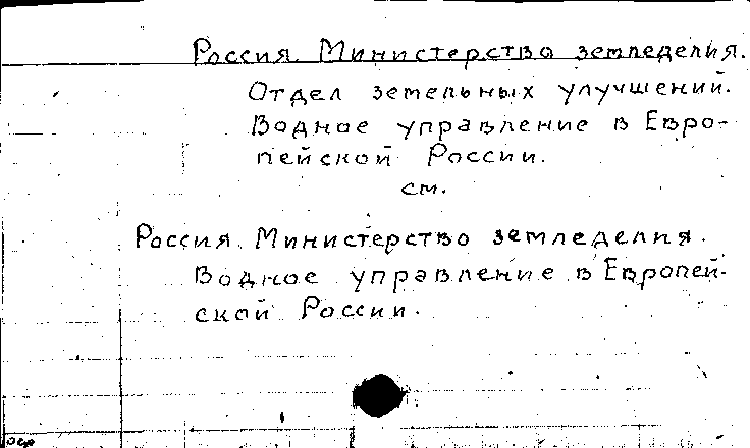 Россия. Министерство земледелия.
Отдел земельных улучшений.
Водное управление в Евро-
пейской России.
см.
Россия. Министерство земледелия.
Водное управление в Европей-
ской России.